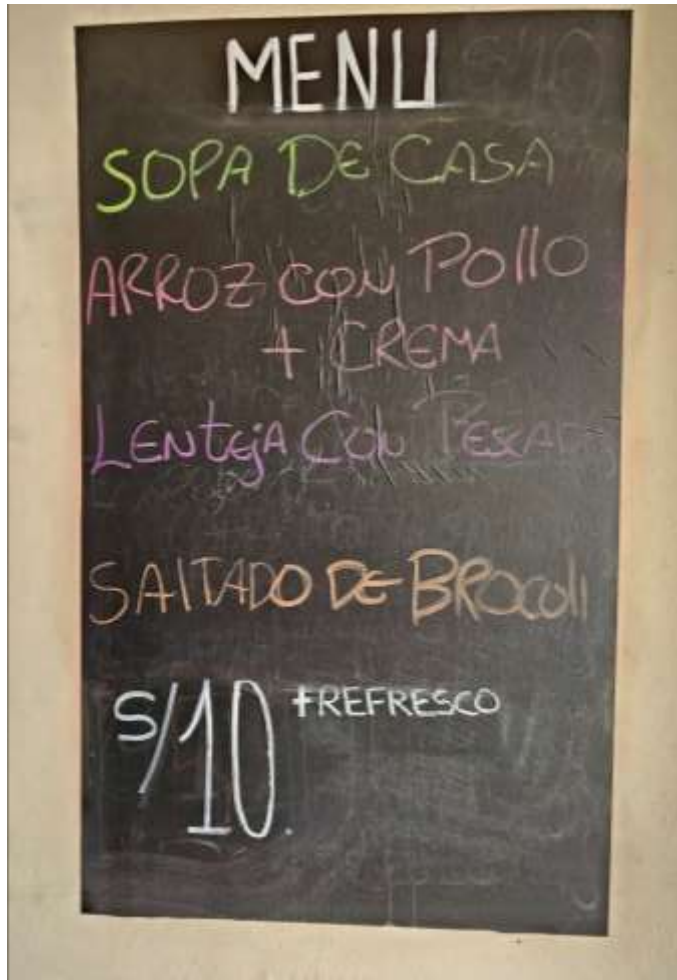 MENU S/10
SOPA DE CASA
ARROZ CON POllO
+ CREMA
LENtejA CON
SAlTADO DE BROCOlI
S/10. +REFRESCO